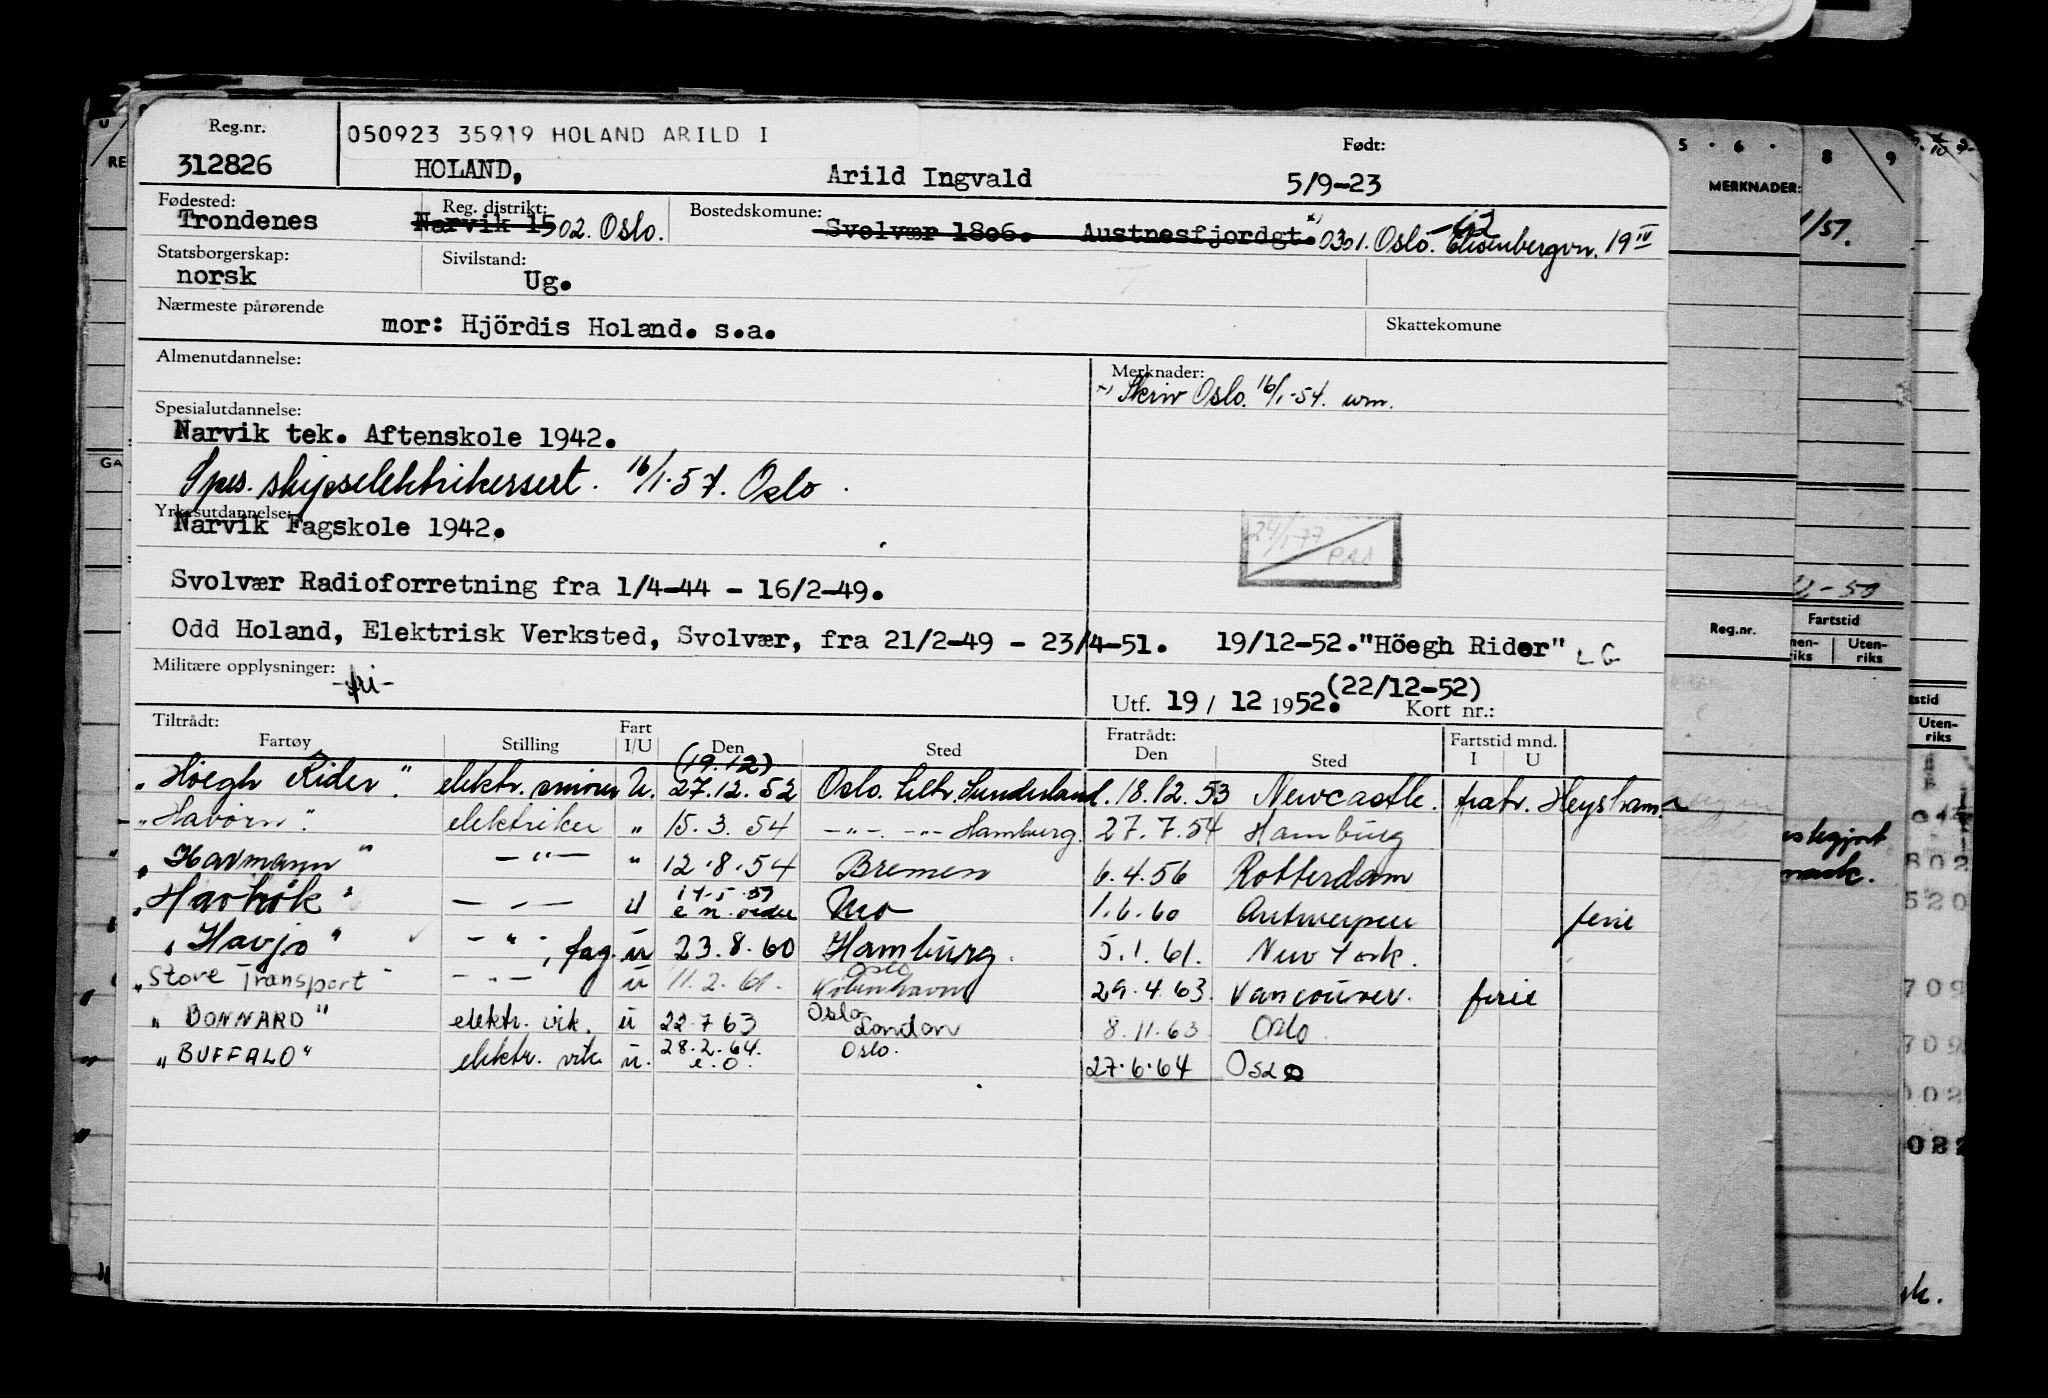 Reg.nr.
312826
050923 35919 HOLAND ARILD I
HOLAND, Arild Ingvald
Født:
5/9-23
Fødested:
Trondenes
Reg. distrikt:
Narvik 15 02. Oslo.
Bostedskomune:
Svolvær 1806. Austnesfjordgt. x) 0301. Oslo. Elisenbergvn. 19 IV
Statsborgerskap:
norsk
Sivilstand:
Ug.
Nærmeste pårørende
mor: Hjördis Holand. s.a.
Skattekomune
Almenutdannelse:
Merknader:
Skriv Oslo. 16/1-54. wm.
Spesialutdannelse:
Narvik tek. Aftenskole 1942.
Spes. skipselektrikersert. 16/1.57. Oslo.
Yrkesutdannelse:
Narvik Fagskole 1942.
24/1-77
Svolvær Radioforretning fra 1/4-44 - 16/2-49.
Odd Holand, Elektrisk Verksted, Svolvær, fra 21/2-49 - 23/4-51. 19/12-52."Höegh Rider" LG
Militære opplysninger:
-fri-
Utf. 19 / 12 1952. (22/12-52)
Kort nr.:
Tiltrådt:
Fartøy Stilling Fart I/U Den Sted
Fratrådt:
Den Sted
Fartstid mnd.
I U
(19.12)
"Høegh Rider". elektr. smører U. 27.12.52 Oslo. tiltr. Sunderland. 18.12.53 Newcastle. fratr. Heysham
"Havørn". elektriker " 15.3.54 -"- -"- Hamburg. 27.7.54 Hamburg
"Havmann" -"- " 12.8.54 Bremen 6.4.56 Rotterdam
"Havhök" -"- U 17.5.57 Mo 1.6.60 Antwerpen ferie
"Havjo" -"-, fag. U 23.8.60 Hamburg. 5.1.61. New York.
"Store Transport" -"- U 11.2.61. Oslo København 29.4.63. Vancouver. ferie
"BONNARD" elektr. vik. U 22.7.63 Oslo London 8.11.63 Oslo
"BUFFALO" elektr. vik. U. 28.2.64. e.o. Oslo. 27.6.64 Oslo
RE
GA
5 . 6 .
8 9
MERKNADER:
1/57.
-50
Reg.nr.
Fartstid
Uten-
riks
Uten-
riks
802
520
709
709
022